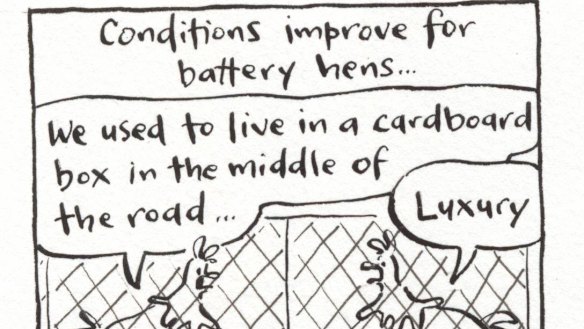 Conditions improve for
battery hens...
We used to live in a cardboard
box in the middle of
the road...
Luxury